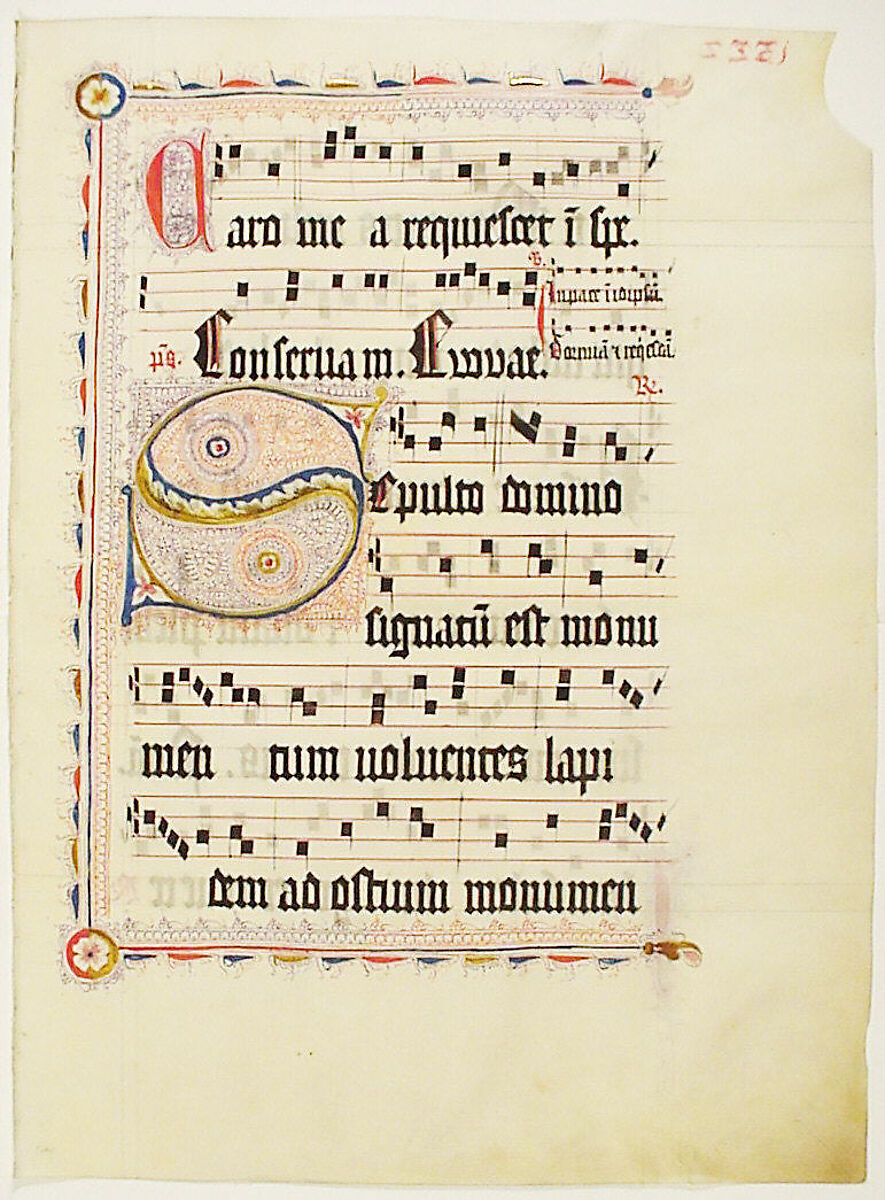 Caro me a requiescet ī spe.
V.
In pace ī idipsū.
Dormiā ⁊ reqescā
ps. Conserua m. Euouae.
R.
Sepulto domino
signatū est monu
men tum uoluentes lapi
dem ad ostium monumen